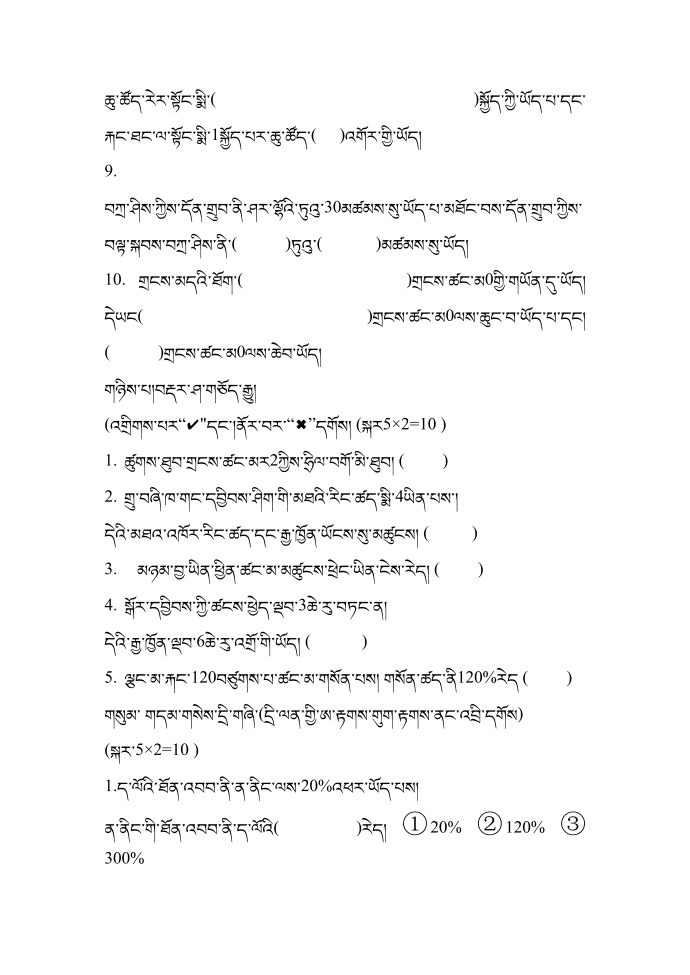 ཆུ་ཚོད་རེར་སྟོང་སྨི་( )སྐྱོད་ཀྱི་ཡོད་པ་དང་
རྐང་ཐང་ལ་སྟོང་སྨི་1སྐྱོད་པར་ཆུ་ཚོད་( )འགོར་གྱི་ཡོད།
9.
བཀྲ་ཤིས་ཀྱིས་དོན་གྲུབ་ནི་ཤར་ལྷོའི་ཏུའུ་30མཚམས་སུ་ཡོད་པ་མཐོང་བས་དོན་གྲུབ་ཀྱིས་
བལྟ་སྐབས་བཀྲ་ཤིས་ནི་( )ཏུའུ་( )མཚམས་སུ་ཡོད།
10. གྲངས་མདའི་ཐོག་( )གྲངས་ཚང་མ0གྱི་གཡོན་དུ་ཡོད།
དེཡང( )གྲངས་ཚང་མ0ལས་ཆུང་བ་ཡོད་པ་དང།
( )གྲངས་ཚང་མ0ལས་ཆེབ་ཡོད།
གཉིས་པ།བརྡར་ཤ་གཅོད་རྒྱུ།
(འགྲིགས་པར“✔"དང་།ནོར་བར་“✖”དགོས། (སྐར5×2=10 )
1. ཚུགས་ཐུབ་གྲངས་ཚང་མར2ཀྱིས་ཧྲིལ་བགོ་མི་ཐུབ། ( )
2. གྲུ་བཞི་ཁ་གང་དབྱིབས་ཤིག་གི་མཐའི་རིང་ཚད་སྨི་4ཡིན་པས་།
དེའི་མཐའ་འཁོར་རིང་ཚད་དང་རྒྱ་ཁྱོན་ཡོངས་སུ་མཚུངས། ( )
3. མཉམ་བྱ་ཡིན་ཕྱིན་ཚང་མ་མཚུངས་ཕྲེང་ཡིན་ངེས་རེད། ( )
4. སྒོར་དབྱིབས་ཀྱི་ཚངས་ཕྱེད་ལྡབ་3ཆེ་རུ་བཏང་ན།
དེའི་རྒྱ་ཁྱོན་ལྡབ་6ཆེ་རུ་འགྲོ་གི་ཡོད། ( )
5. ལྕང་མ་རྐང་120བཙུགས་པ་ཚང་མ་གསོན་པས། གསོན་ཚད་ནི120%རེད ( )
གསུམ་ གདམ་གསེས་དྲི་གཞི་(དྲི་ལན་གྱི་ཨ་རྟགས་གུག་རྟགས་ནང་འབྲི་དགོས)
(སྐར་5×2=10 )
1.ད་ལོའི་ཐོན་འབབ་ནི་ན་ནིང་ལས་20%འཕར་ཡོད་པས།
ན་ནིང་གི་ཐོན་འབབ་ནི་ད་ལོའི( )རེད། ① 20% ② 120% ③
300%